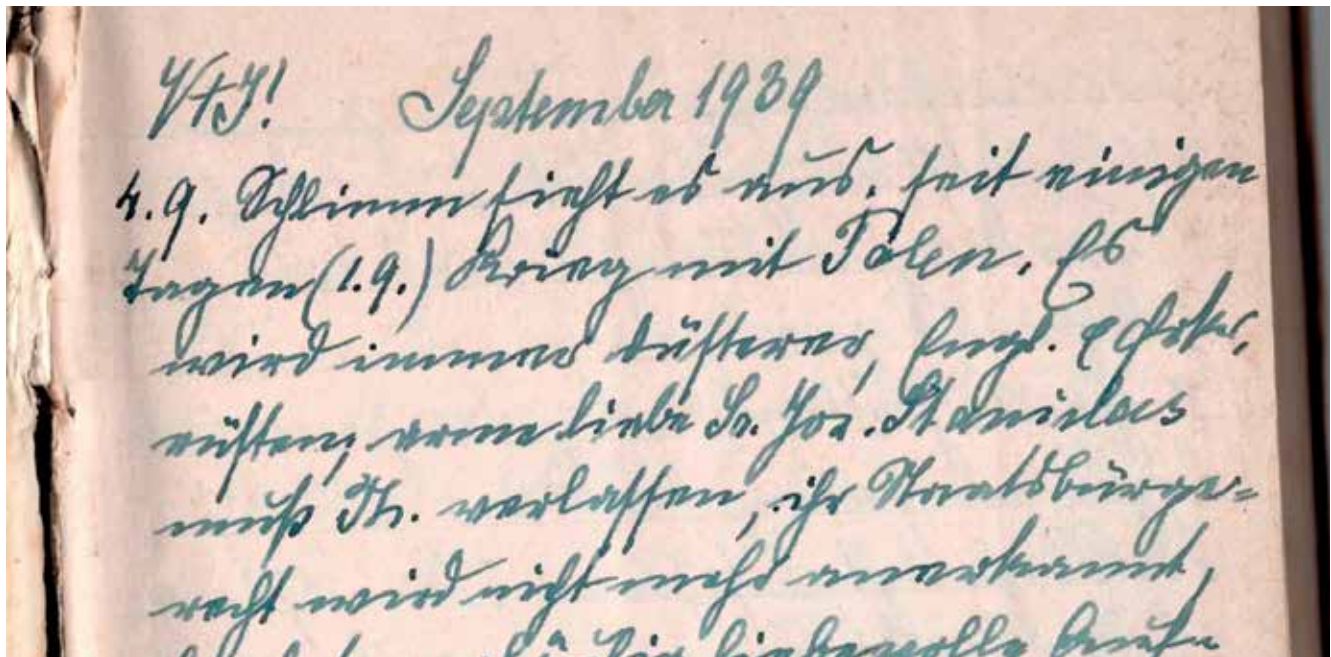 V+J! September 1939
4.9. Schlimm sieht es aus. seit einigen
Tagen (1.9.) Krieg mit Polen. Es
wird immer düsterer, Engl.
rüsten, arme liebe Sr. Jos. Stanislaus
muß It. verlassen, ihr Staatsbürger=
recht wird nicht mehr anerkannt,
liebevolle